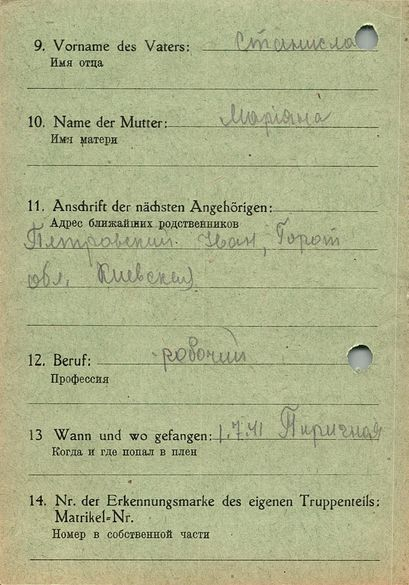 9. Vorname des Vaters: Станисла
Имя отца
10. Name der Mutter: Маріяна
Имя матери
11. Anschrift der nächsten Angehörigen:
Адрес ближайших родственников
Петровский Иван,
обл. Киевская
12. Beruf: рабочий
Профессия
13 Wann und wo gefangen: 1.7.41
Когда и где попал в плен
14. Nr. der Erkennungsmarke des eigenen Truppenteils:
Matrikel-Nr.
Номер в собственной части